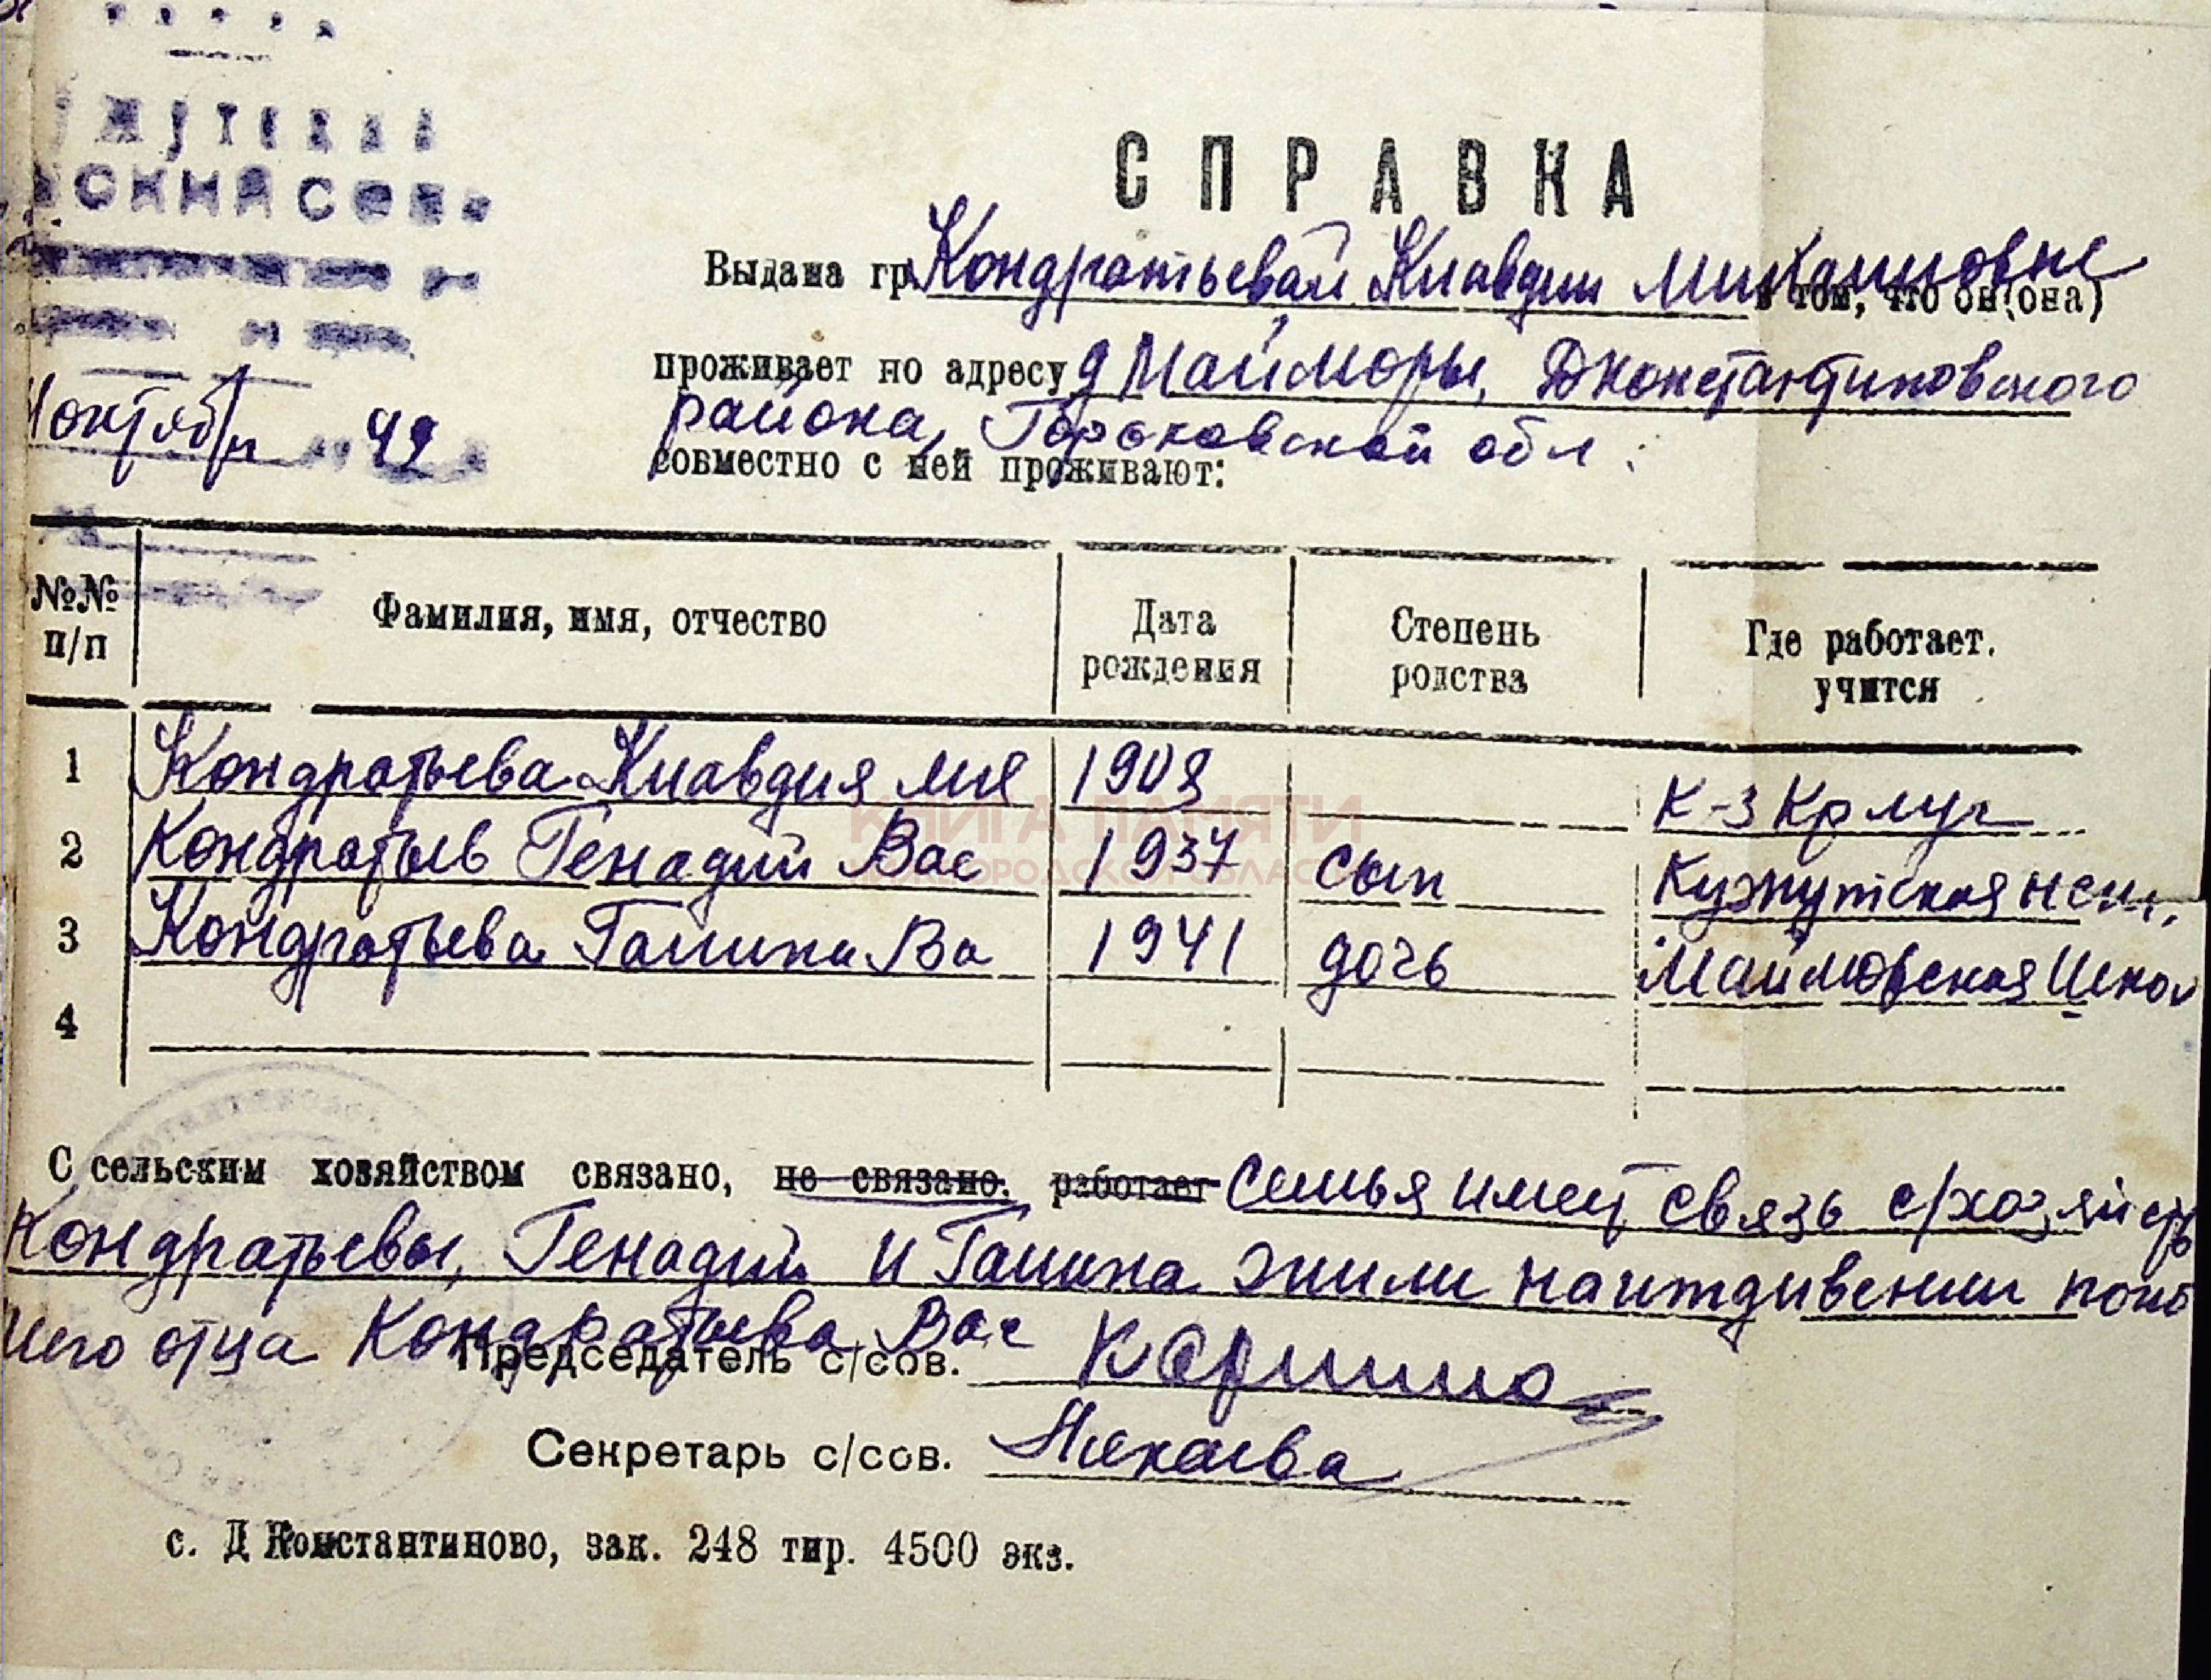 СПРАВКА
Выдана гр. Кондратьевой Клавдии Михайловне
в том, что он(она)
проживает по адресу д Майморы, Дконстантиновского
района, Горьковской обл.
совместно с ней проживают:
октября 49
№№ п/п Фамилия, имя, отчество Дата рождения Степень родства Где работает. учится
1 Кондратьева Клавдия 1909 К-з Кр луч
2 Кондратьев Генадий Вас 1937 сын Кужутская
3 Кондратьева Галина Ва 1941 дочь Маймовская Школ
4
С сельским хозяйством связано, не связано. работает Семья имеет связь с/хозяйств
Кондратьевы, Генадий и Галина жили наиждивении погиб
шего отца Кондратьева Вас
Председатель с/сов.
Секретарь с/сов.
с. Д Константиново, зак. 248 тир. 4500 экз.
КНИГА ПАМЯТИ
НИЖЕГОРОДСКОЙ ОБЛАСТИ